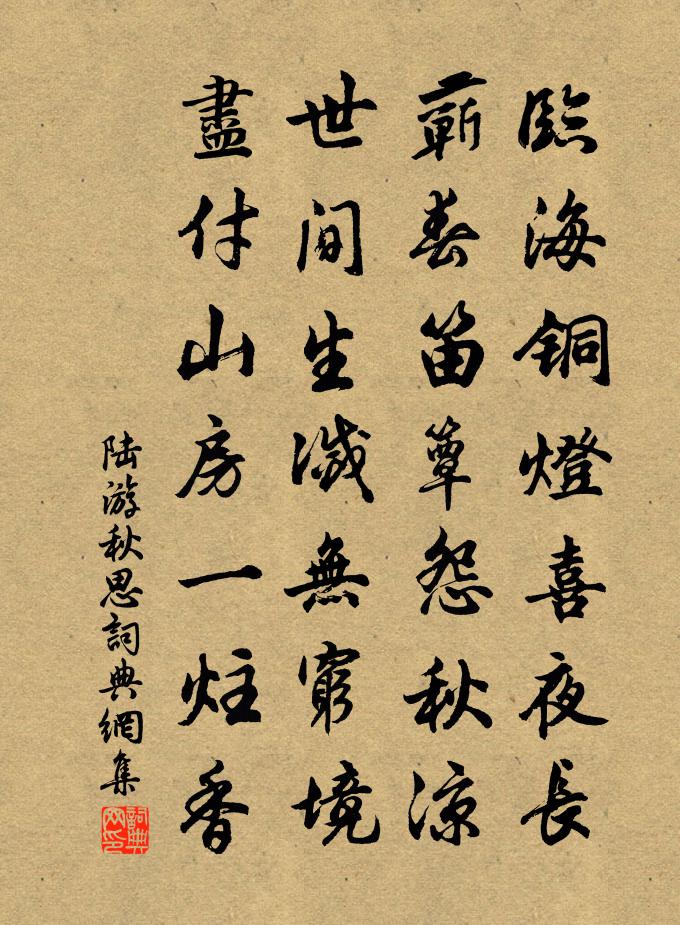 臨海銅燈喜夜長
蘄春笛簟怨秋涼
世間生滅無窮境
盡付山房一炷香
陆游秋思詞典網集
詞典网印